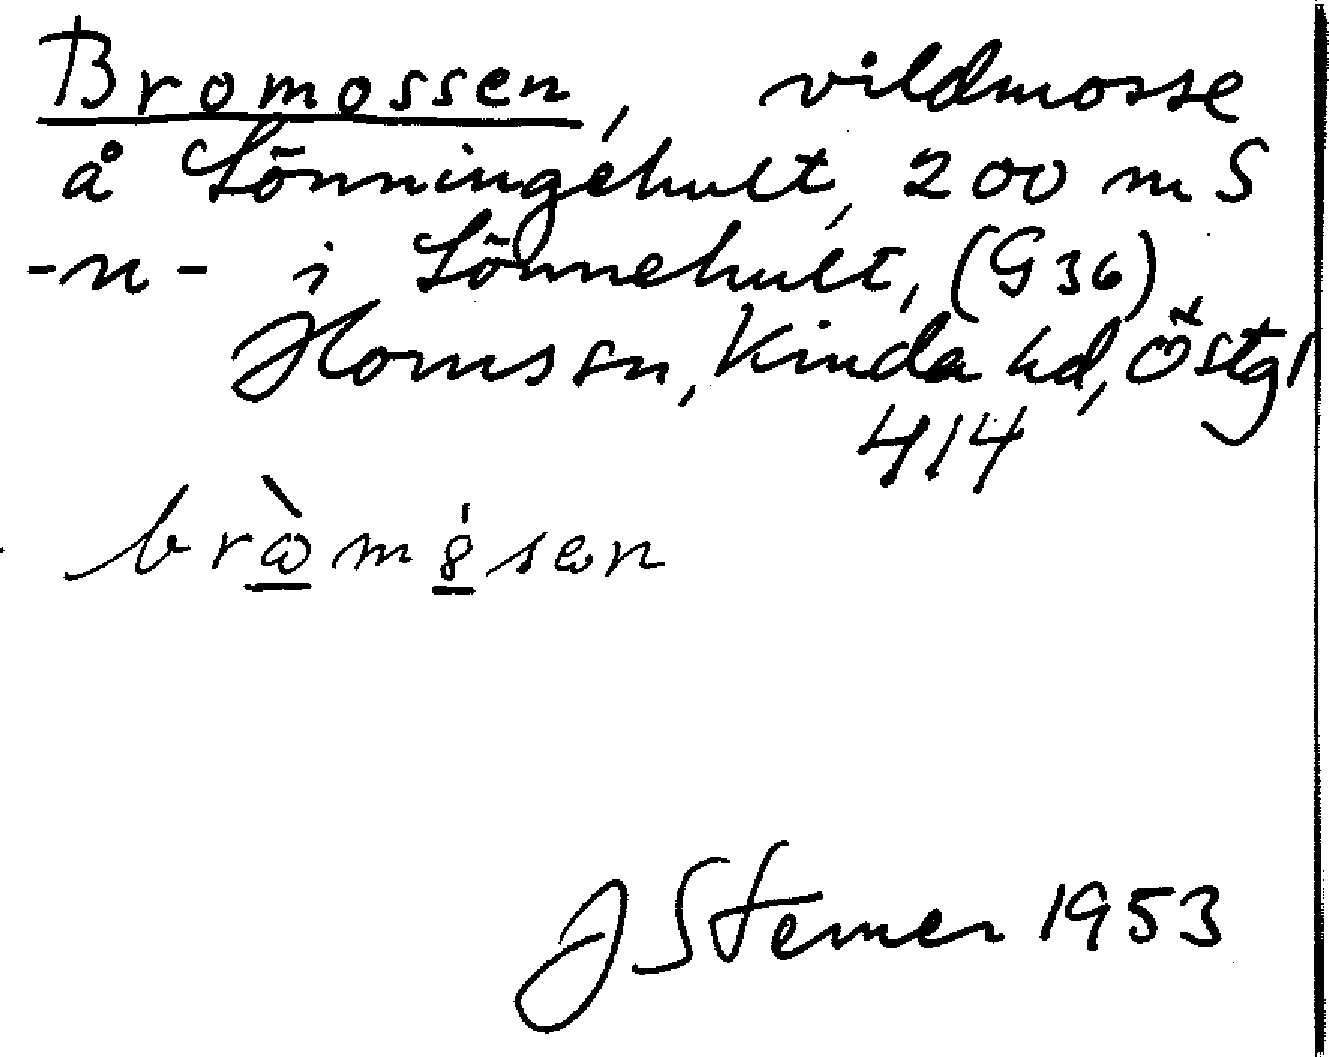 Bromossen, vildmosse
å Lönningehult, 200 m S
-n- i Lönnehult, (G36)
Horns sn, Kinda hd, Östgl
414
bròmósen
J Sterner 1953